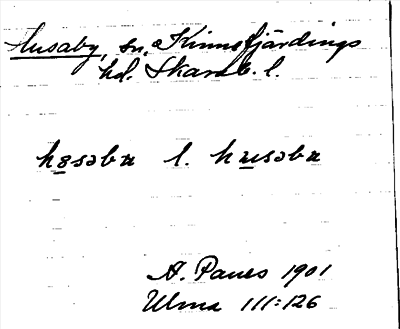 Husaby, sn, Kinnefjärdings
hd. Skarab. l.
hɵsəbʉ l. hʉsəbʉ
A. Paues 1901
Ulma 111:126